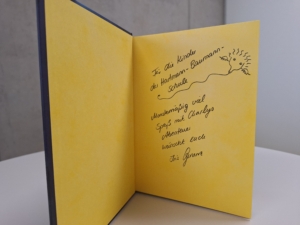 Für die Kinder
der Hartmann-Baumann-
Schule
viel
Spaß mit Charlys
Abenteuer
wünscht Euch